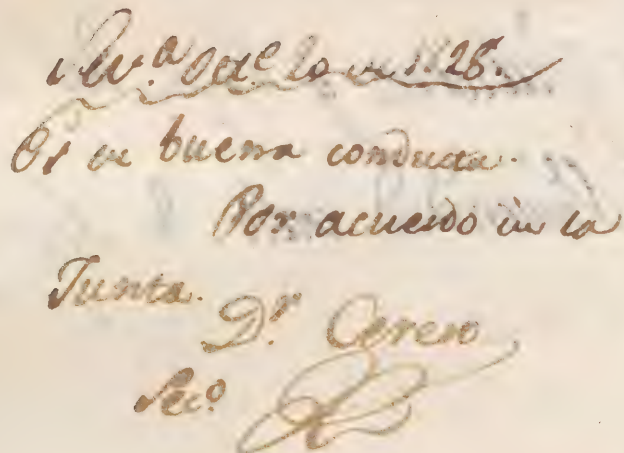 Sev.ª Oct.e 10 de 1828.
Es de buena conducta.
Por acuerdo de la
Junta.
D.r Cerero
Sec.o